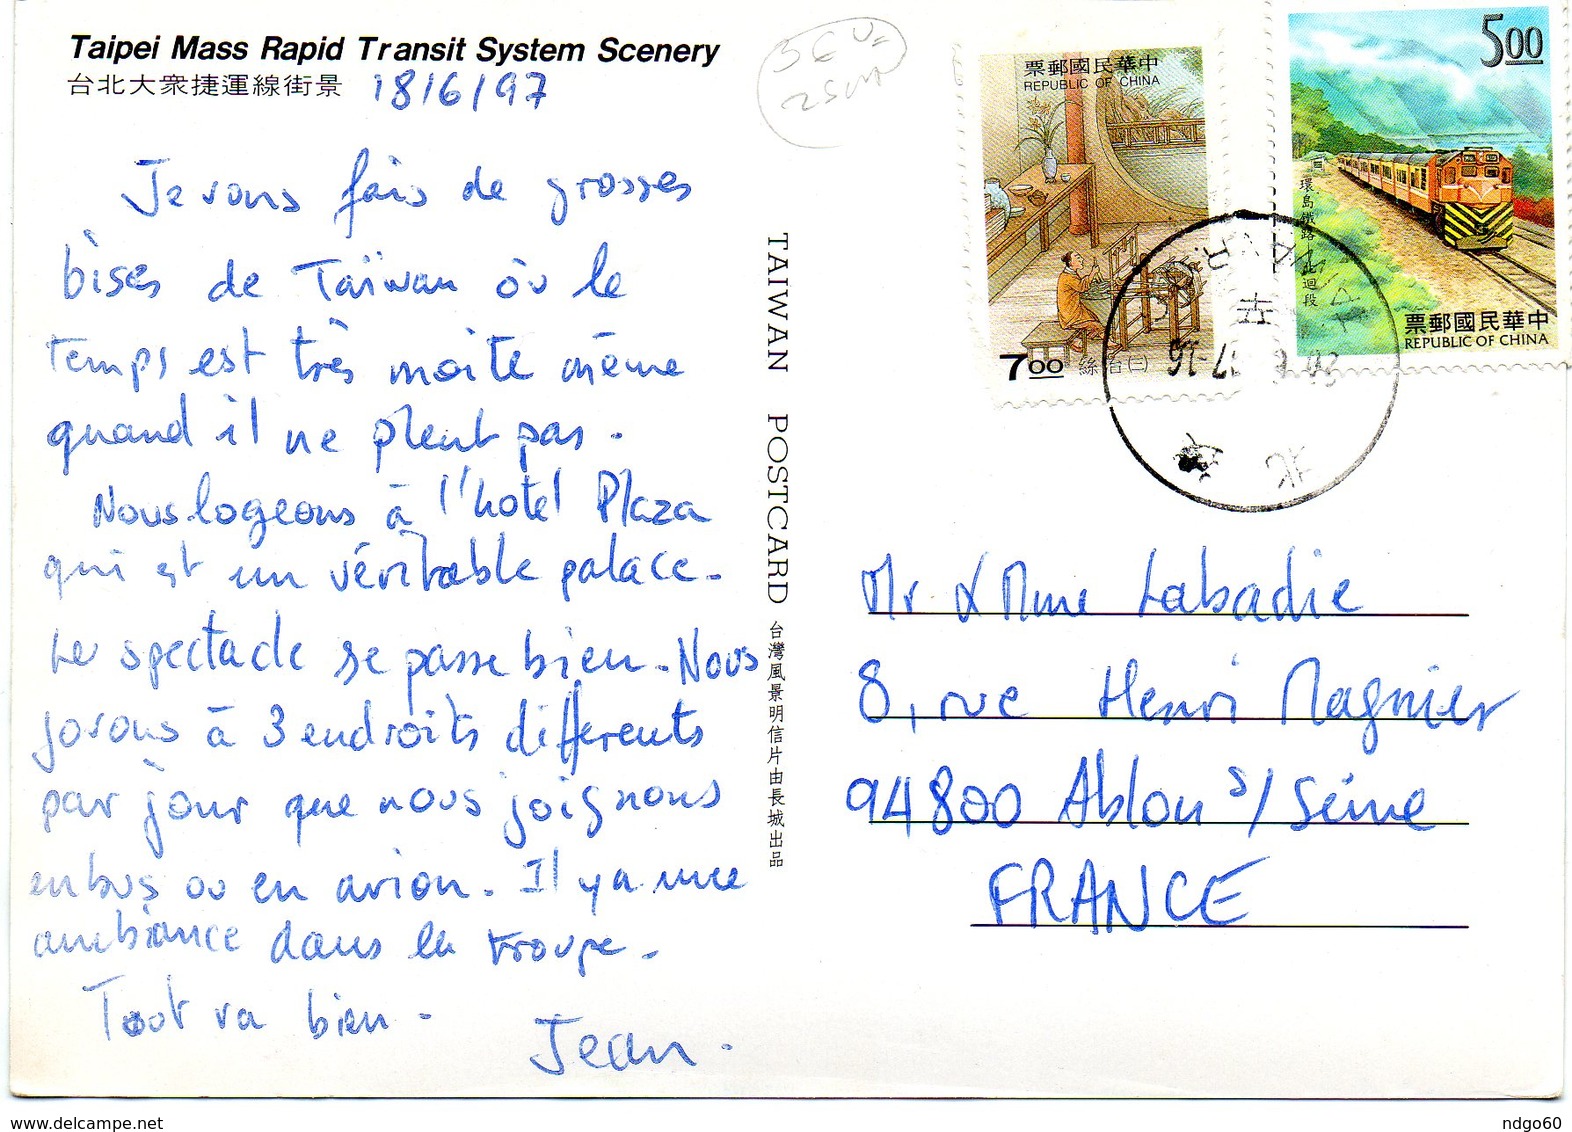 Taipei Mass Rapid Transit System Scenery
台北大眾捷運線街景 18/6/97
Je vous fais de grosses
bises de Taïwan où le
temps est très moite même
quand il ne pleut pas.
Nous logeons à l'hotel Plaza
qui est un véritable palace.
Le spectacle se passe bien. Nous
jouons à 3 endroits différents
par jour que nous joignons
en bus ou en avion. Il y a une
ambiance dans la troupe.
Tout va bien.
Jean.
TAIWAN POSTCARD 台灣風景明信片由長城出品
票郵國民華中
REPUBLIC OF CHINA
7.00
絲 (二)
5.00
環島鐵路 迴段
票郵國民華中
REPUBLIC OF CHINA
Mr & Mme Labadie
8, rue Henri Magnier
94800 Ablon s/ Seine
FRANCE
www.delcampe.net
ndgo60